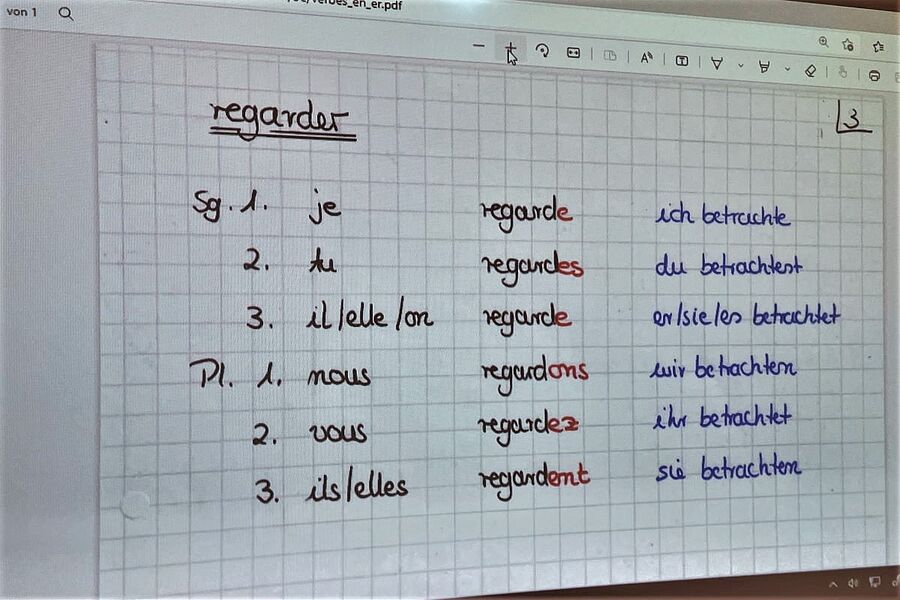 von 1
verbes_en_er.pdf
regarder
3
Sg. 1. je regarde ich betrachte
2. tu regardes du betrachtest
3. il/elle/on regarde er/sie/es betrachtet
Pl. 1. nous regardons wir betrachten
2. vous regardez ihr betrachtet
3. ils/elles regardent sie betrachten